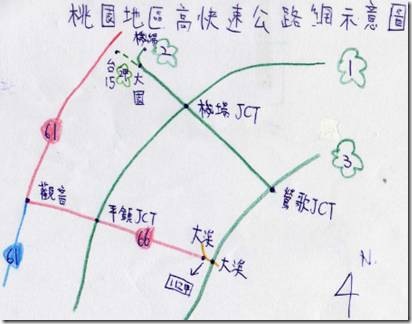 桃園地區高快速公路網示意圖
機場
2
台15
大園
1
機場JCT
61
3
觀音
鶯歌JCT
平鎮JCT
大溪
66
大溪
61
N.
4